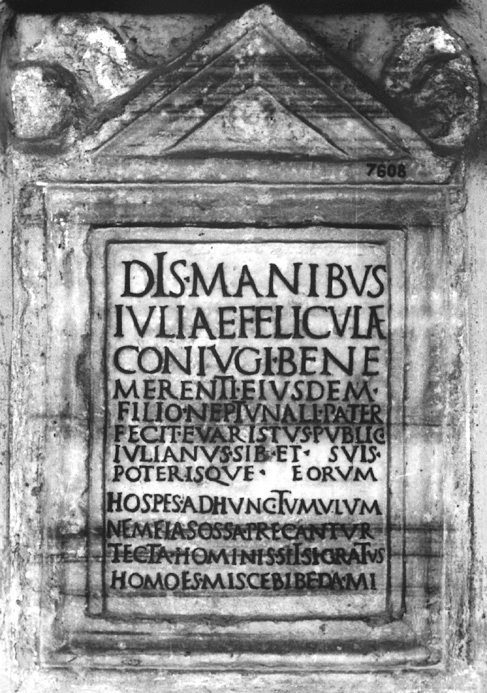 7608
DIS·MANIBVS
IVLIAE FELICVLAE
CONIVGI·BENE
MERENTI EIVSDEM·
FILIO·NEPTVNALI·PATER
FECIT·EVARISTVS·PVBLIC
IVLIANVS·SIB·ET· SVIS·
POTERISQVE· EORVM
HOSPES·AD HVNC TVMVLVM
NE MEIAS OSSA PRECANTVR
TECTA·HOMINIS SET SI GRATVS
HOMO ES·MISCE BIBE DA·MI